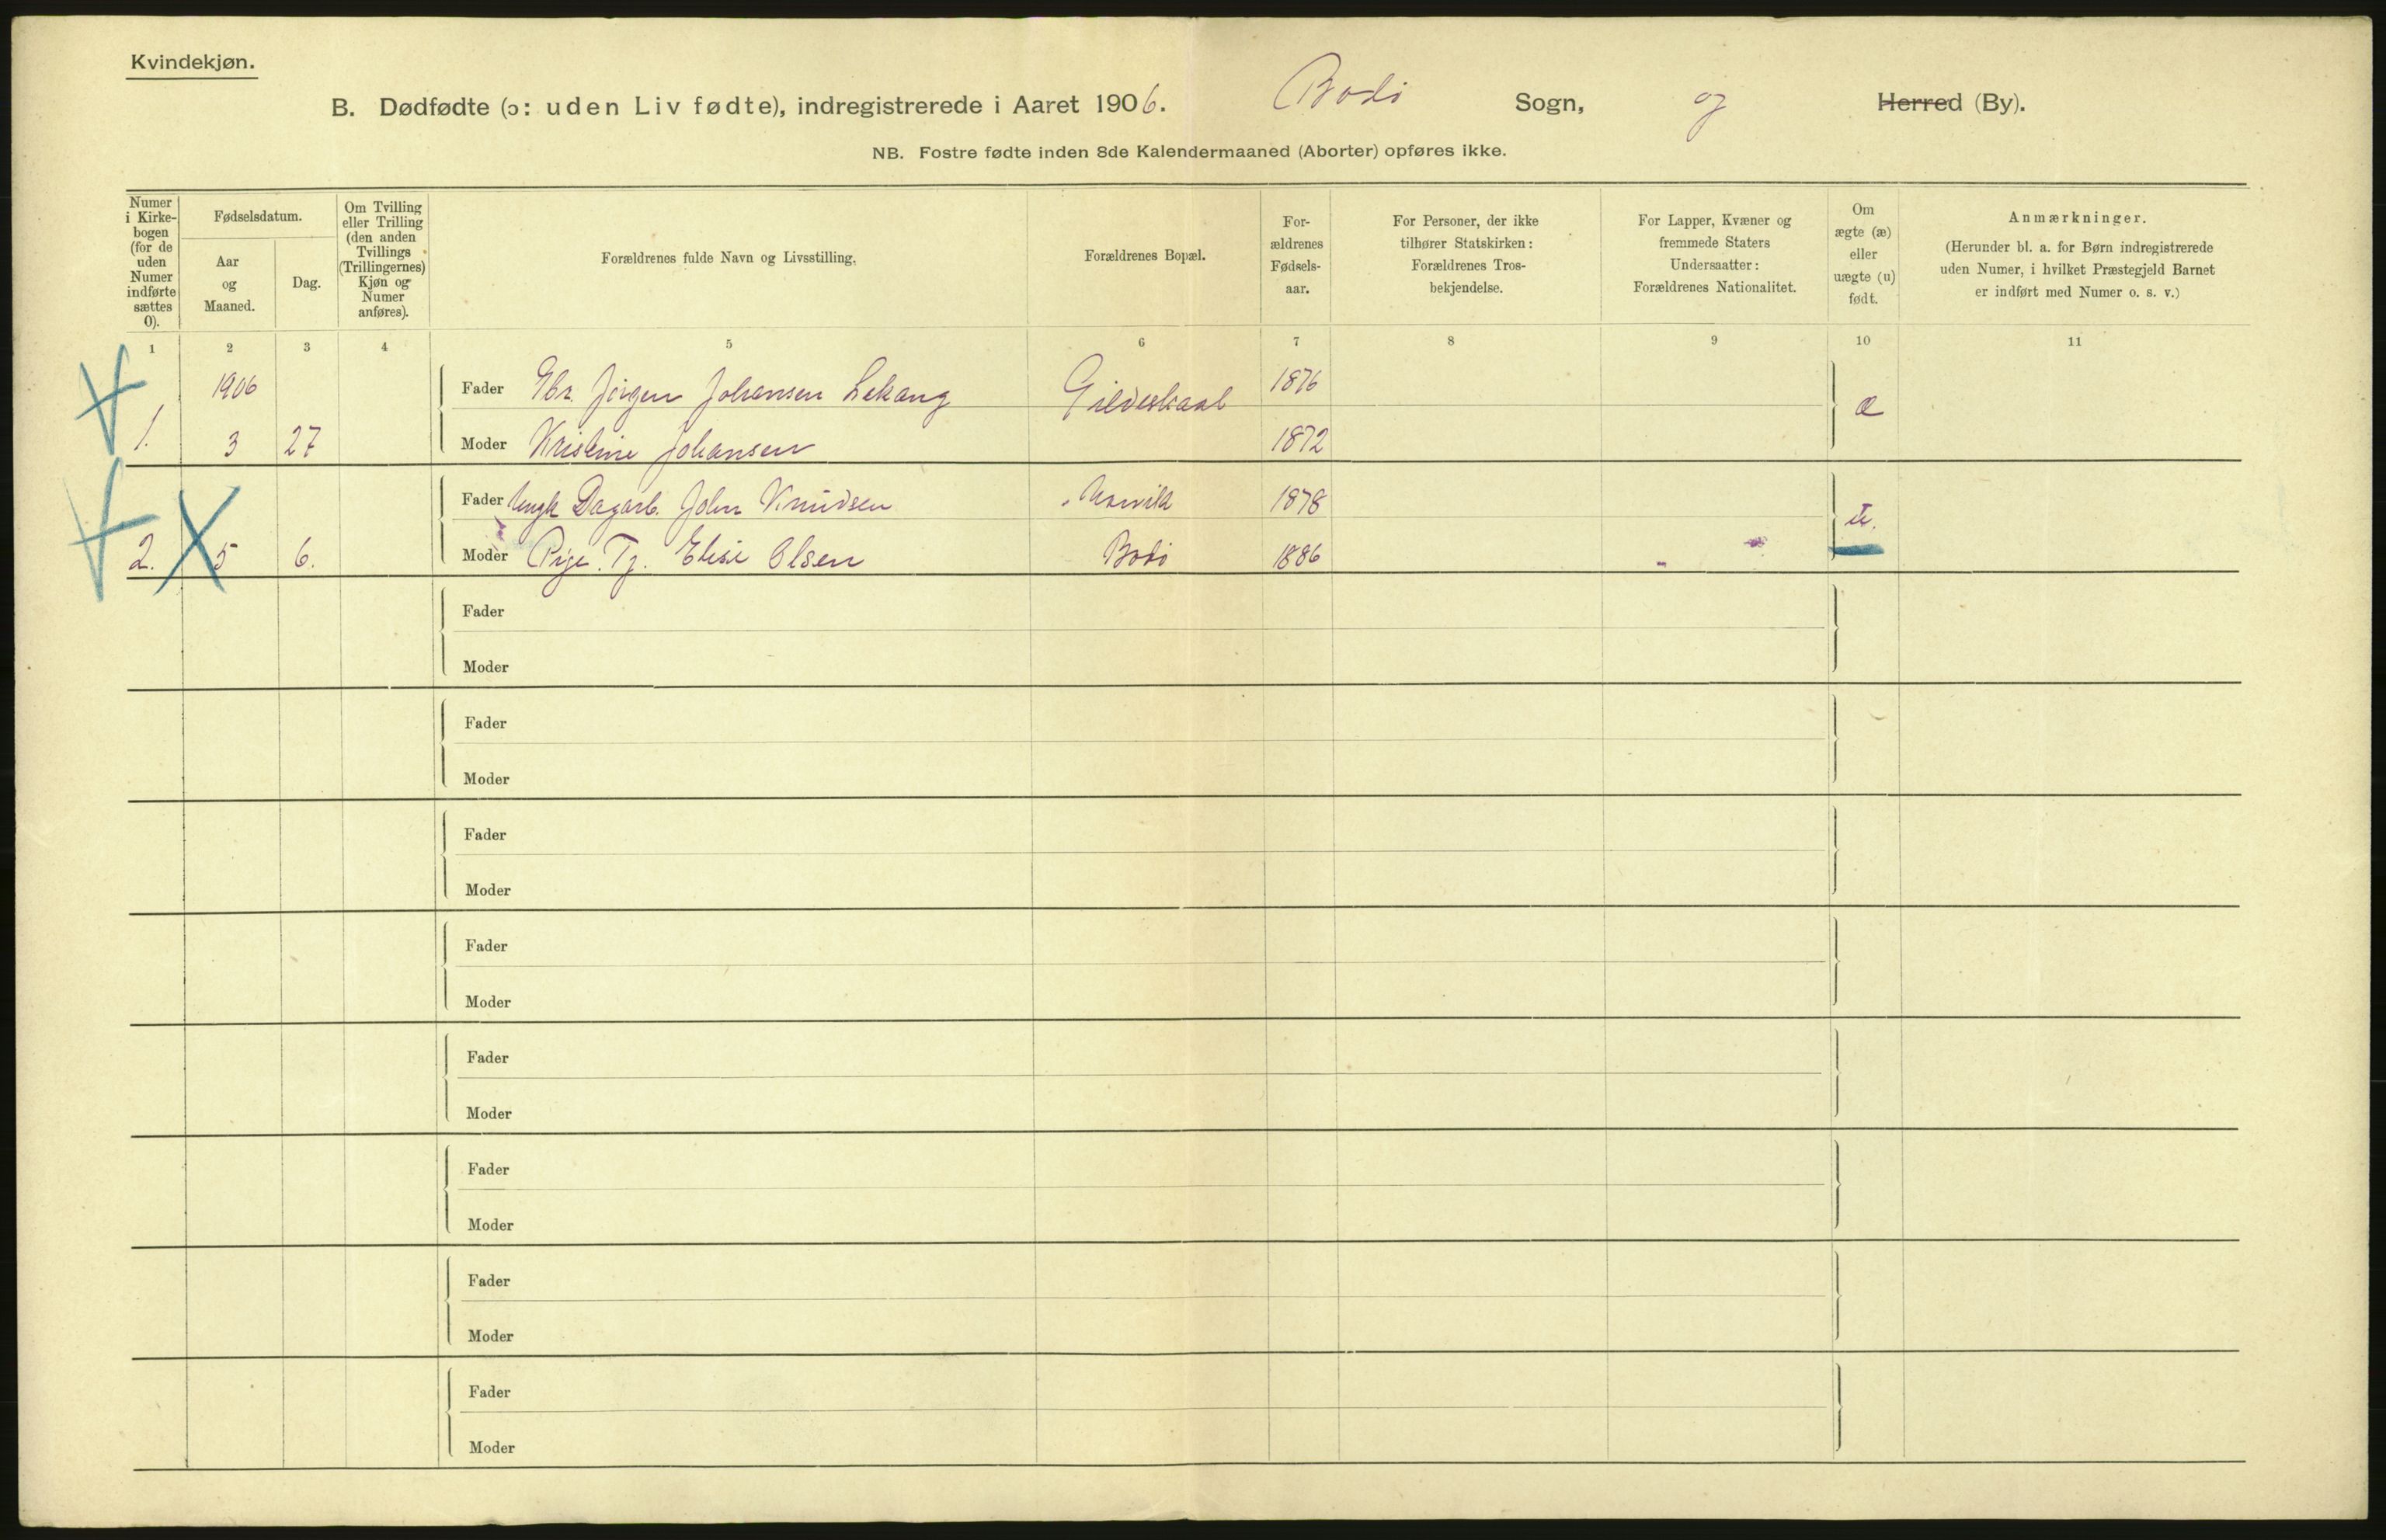 Kvindekjøn.
B. Dødfødte (ɔ: uden Liv fødte), indregistrerede i Aaret 1906. Bodø Sogn, og Herred (By).
NB. Fostre fødte inden 8de Kalendermaaned (Aborter) opføres ikke.
Numer i Kirke-bogen (for de uden Numer indførte sættes 0).
Fødselsdatum.
Aar og Maaned.
Dag.
Om Tvilling eller Trilling (den anden Tvillings (Trillingernes) Kjøn og Numer anføres).
Forældrenes fulde Navn og Livsstilling.
Forældrenes Bopæl.
For-ældrenes Fødsels-aar.
For Personer, der ikke tilhører Statskirken: Forældrenes Tros-bekjendelse.
For Lapper, Kvæner og fremmede Staters Undersaatter: Forældrenes Nationalitet.
Om ægte (æ) eller uægte (u) født.
Anmærkninger.
(Herunder bl. a. for Børn indregistrerede uden Numer, i hvilket Præstegjeld Barnet er indført med Numer o. s. v.)
1 2 3 4 5 6 7 8 9 10 11
1906 Fader Gbr. Jørgen Johansen Lekang Gildeskaal 1876 æ
1. 3 27 Moder Kristine Johansen 1872
Fader Ungk Dagarb. John Knudsen Narvik 1878 u.
2. 5 6. Moder Pige Tj. Elise Olsen Bodø 1886
Fader
Moder
Fader
Moder
Fader
Moder
Fader
Moder
Fader
Moder
Fader
Moder
Fader
Moder
Fader
Moder